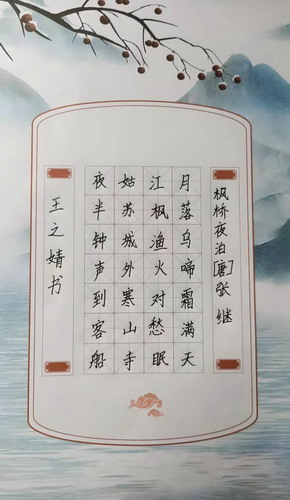 枫桥夜泊[唐]张继
月落乌啼霜满天
江枫渔火对愁眠
姑苏城外寒山寺
夜半钟声到客船
王之婧书